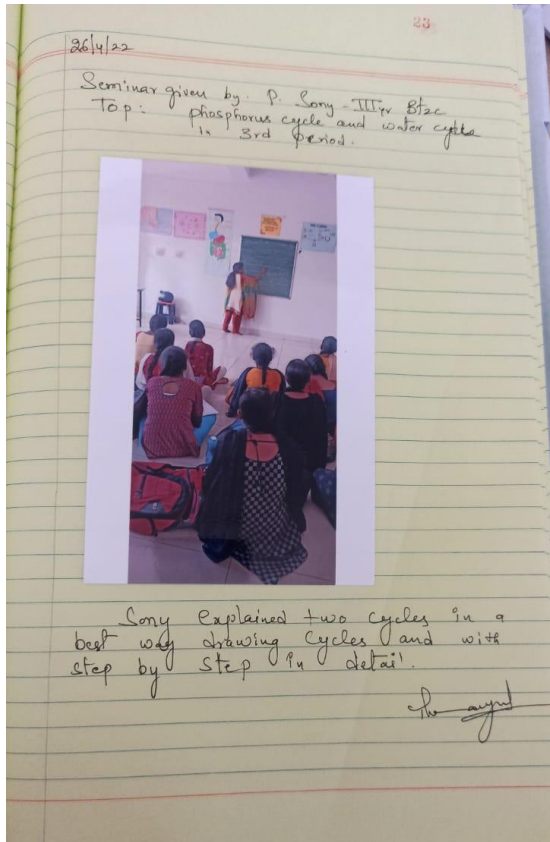 23
26/4/22
Seminar given by. P. Sony - III yr Btzc
Top: phosphorus cycle and water cycle
in 3rd period.
Sony explained two cycles in a
best way drawing cycles and with
step by step in detail.